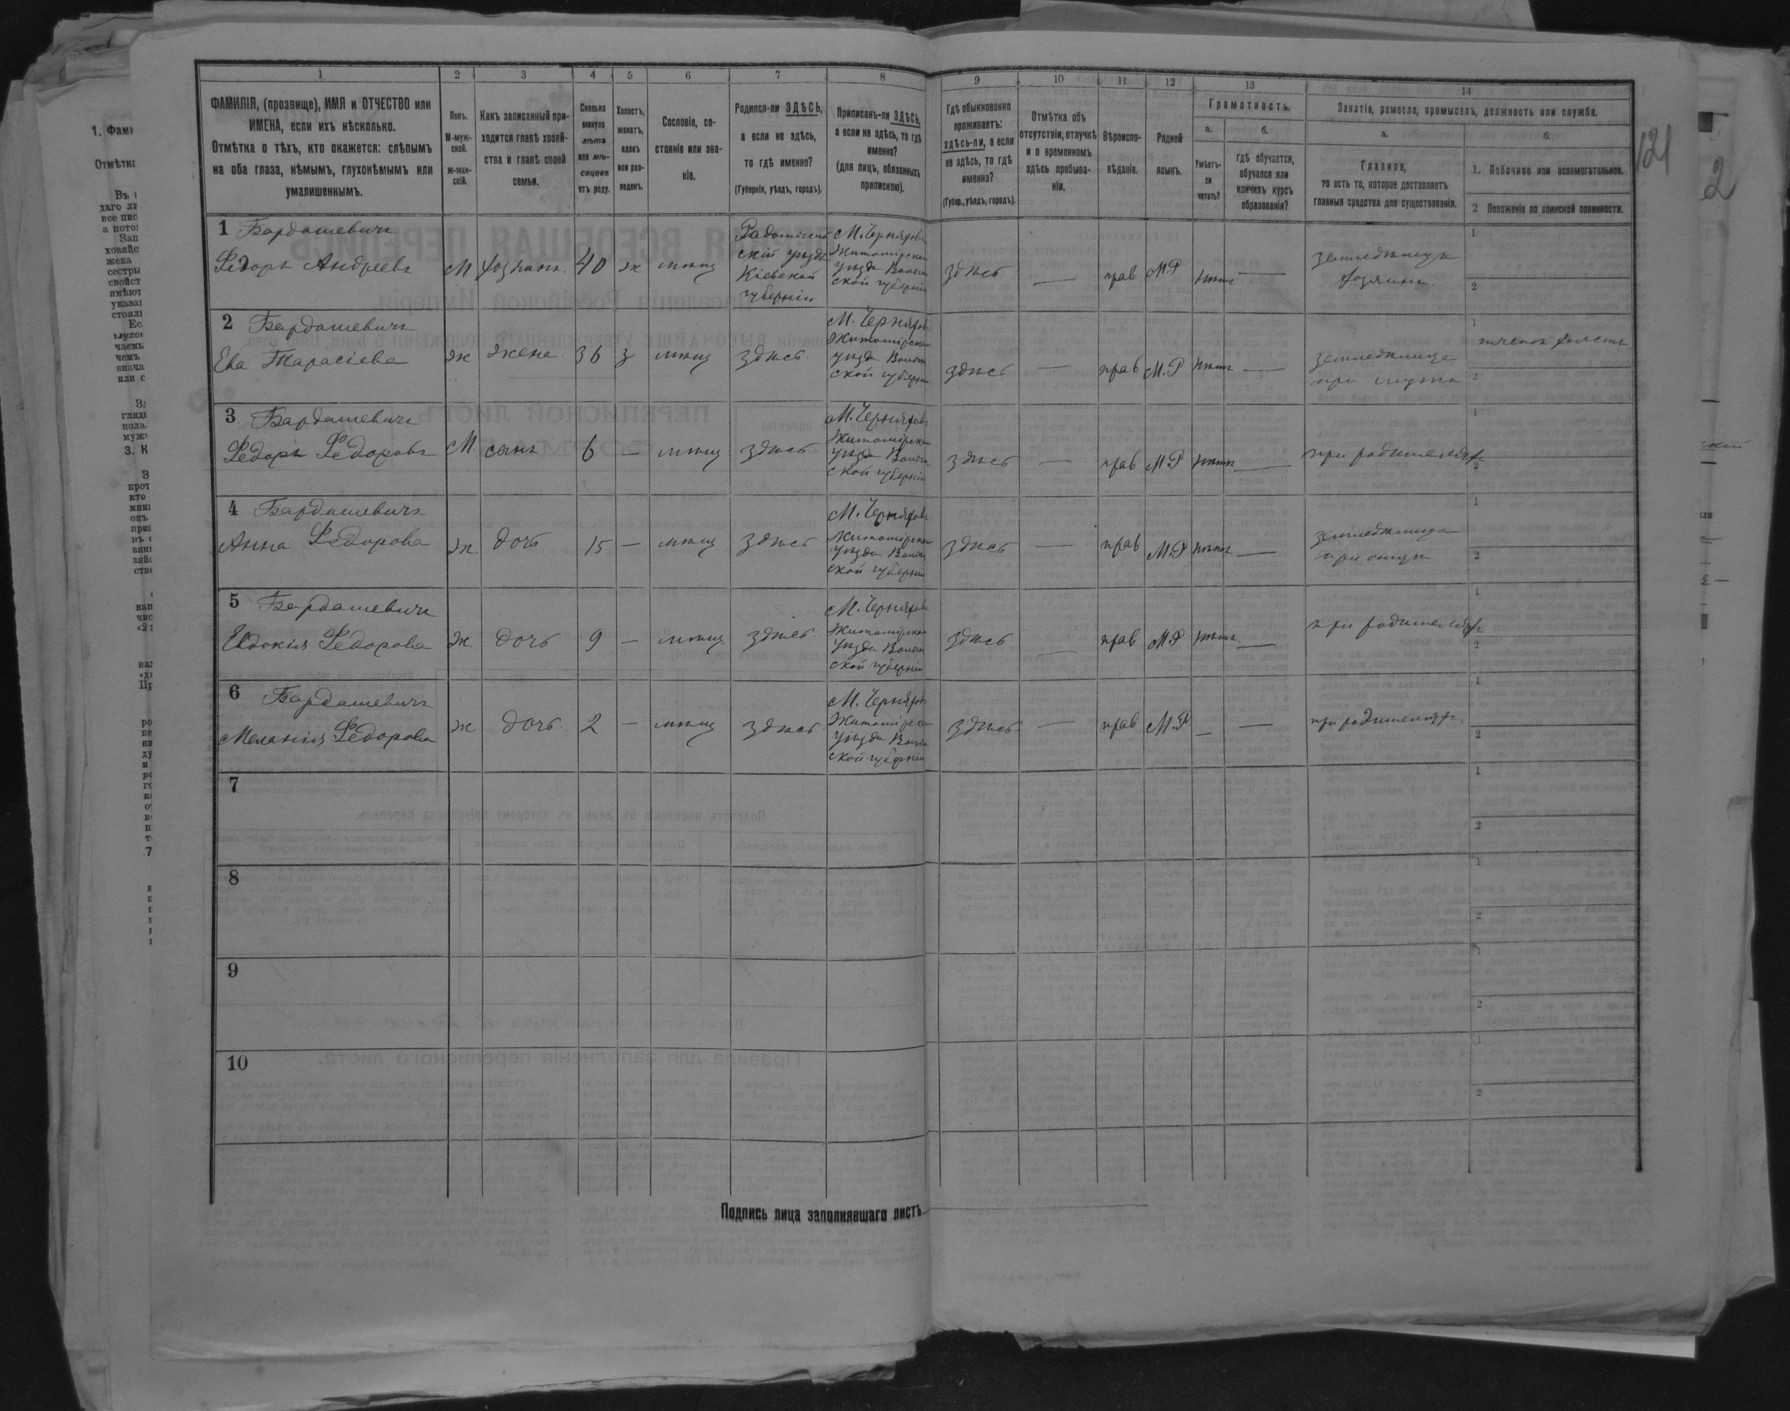 1 2 3 4 5 6 7 8 9 10 11 12 13 14
ФАМИЛІЯ, (прозвище), ИМЯ и ОТЧЕСТВО или
ИМЕНА, если ихъ нѣсколько.
Отмѣтка о тѣхъ, кто окажется: слѣпымъ
на оба глаза, нѣмымъ, глухонѣмымъ или
умалишеннымъ.
Полъ.
М-муж-
ской.
Ж-жен-
скій.
Какъ записанный при-
ходится главѣ хозяй-
ства и главѣ своей
семьи.
Сколько
минуло
лѣтъ
или мѣ-
сяцевъ
отъ роду.
Холостъ,
женатъ,
вдовъ
или раз-
веденъ.
Сословіе, со-
стояніе или зва-
ніе.
Родился-ли ЗДѢСЬ,
а если не здѣсь,
то гдѣ именно?
(Губернія, уѣздъ, городъ).
Приписанъ-ли ЗДѢСЬ,
а если не здѣсь, то гдѣ
именно?
(для лицъ, обязанныхъ
припискою).
Гдѣ обыкновенно
проживаетъ:
здѣсь-ли, а если
не здѣсь, то гдѣ
именно?
(Губер., уѣздъ, городъ).
Отмѣтка объ
отсутствіи, отлучкѣ
и о временномъ
здѣсь пребыва-
ніи.
Вѣроиспо-
вѣданіе.
Родной
языкъ.
Грамотность.
а.
Умѣетъ-
ли
читать?
б.
Гдѣ обучается,
обучался или
кончилъ курсъ
образованія?
Занятіе, ремесло, промыселъ, должность или служба.
а.
Главное,
то есть то, которое доставляетъ
главныя средства для существованія.
б.
1. Побочное или вспомогательное.
2 Положеніе по воинской повинности.
121
2
1 Бардашевичъ
Федоръ Андреевъ
М
хозяинъ
40
ж
мѣщ
Радомысль-
скій уѣздъ
Кіевской
губерніи
М. Черняхов
Житомірска
уѣзда Волын
ской губерніи
здѣсь
—
прав
М.Р
—
земледѣлецъ
хозяинъ
1
2
2 Бардашевичъ
Ева Тарасіева
ж
жена
36
з
мѣщ
здѣсь
М. Черняхов
Житомірска
уѣзда Волын
ской губерніи
здѣсь
—
прав
М.Р
—
земледѣлица
при мужѣ
1
2
3 Бардашевичъ
Федоръ Федоровъ
М
сынъ
6
—
мѣщ
здѣсь
М. Черняхов
Житомірска
уѣзда Волын
ской губерніи
здѣсь
—
прав
М.Р
—
при родителяхъ
1
2
4 Бардашевичъ
Анна Федорова
ж
дочь
15
—
мѣщ
здѣсь
М. Черняхов
Житомірска
уѣзда Волын
ской губерніи
здѣсь
—
прав
М.Р
—
земледѣлица
при отцѣ
1
2
5 Бардашевичъ
Евдокія Федорова
ж
дочь
9
—
мѣщ
здѣсь
М. Черняхов
Житомірска
уѣзда Волын
ской губерніи
здѣсь
—
прав
М.Р
—
при родителяхъ
1
2
6 Бардашевичъ
Меланія Федорова
ж
дочь
2
—
мѣщ
здѣсь
М. Черняхов
Житомірска
уѣзда Волын
ской губерніи
здѣсь
—
прав
М.Р
—
—
при родителяхъ
1
2
7
1
2
8
1
2
9
1
2
10
1
2
Подпись лица заполнявшаго листъ